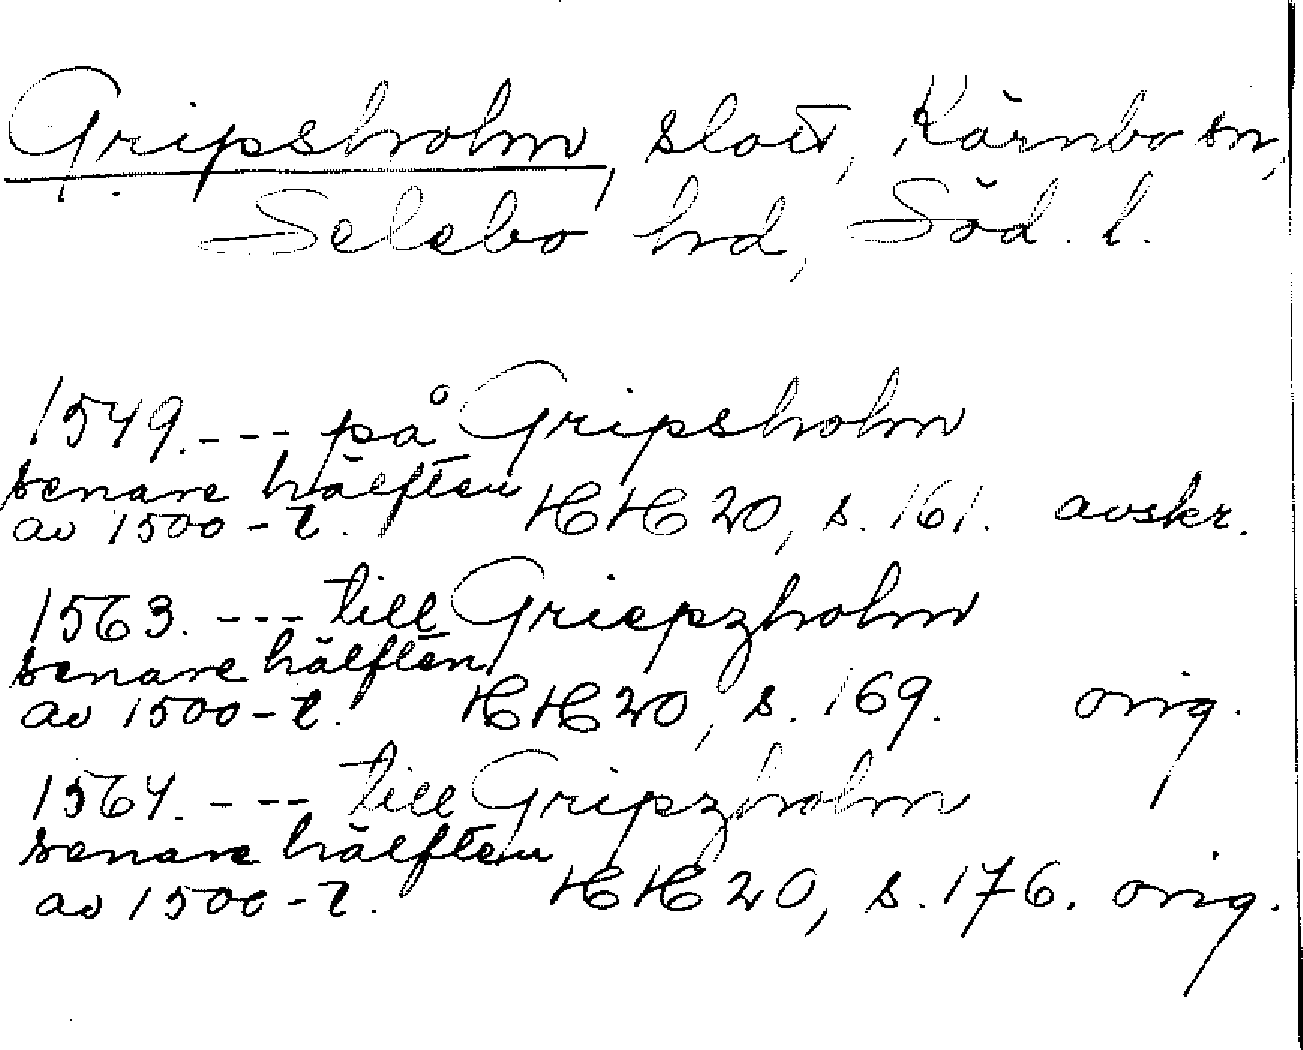 Gripsholm, slott, Kärnbo sn,
Selebo hd, Söd. l.
1549. --- på Gripsholm
senare hälften
av 1500-t. HH 20, s. 161. avskr.
1563. --- till Griepzholm
senare hälften
av 1500-t. HH 20, s. 169. orig.
1564. --- till Gripzholm
senare hälften
av 1500-t. HH 20, s. 176. orig.